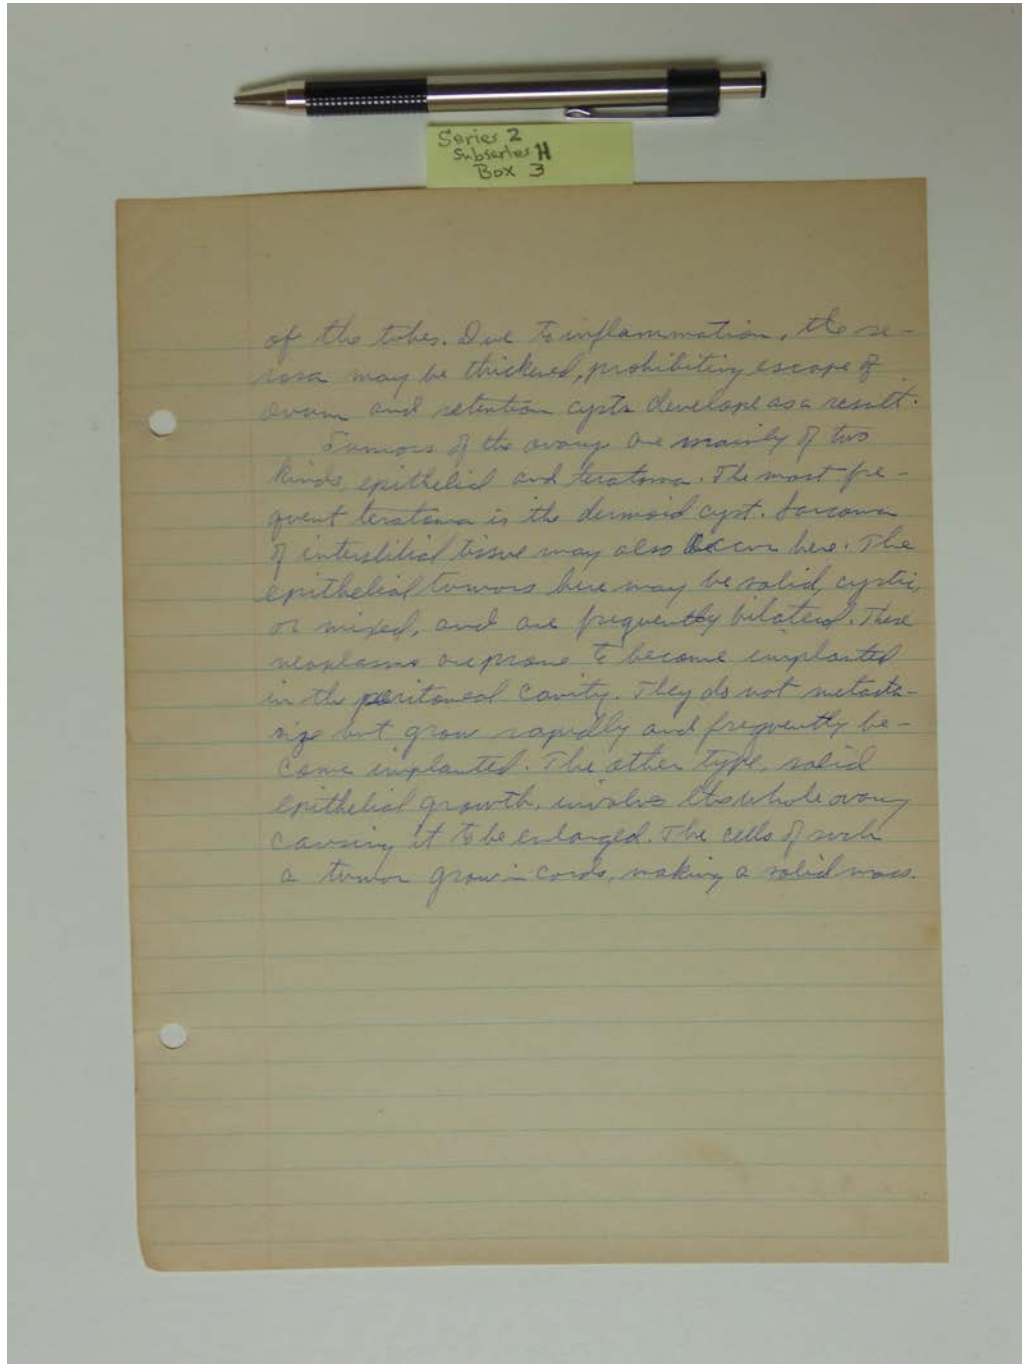 Series 2
Subseries H
Box 3
of the tubes. Due to inflammation, the se-
rosa may be thickened, prohibiting escape of
ovum and retention cysts develope as a result.
Tumors of the ovary are mainly of two
kinds, epithelial and teratoma. The most fre-
quent teratoma is the dermoid cyst. Sarcoma
of interstitial tissue may also occur here. The
epithelial tumors here may be solid, cystic,
or mixed, and are frequently bilateral. These
neoplasms are prone to become implanted
in the peritoneal cavity. They do not metasta-
size but grow rapidly and frequently be-
come implanted. The other type, solid
epithelial growth, involves the whole ovary
causing it to be enlarged. The cells of such
a tumor grow in cords, making a solid mass.